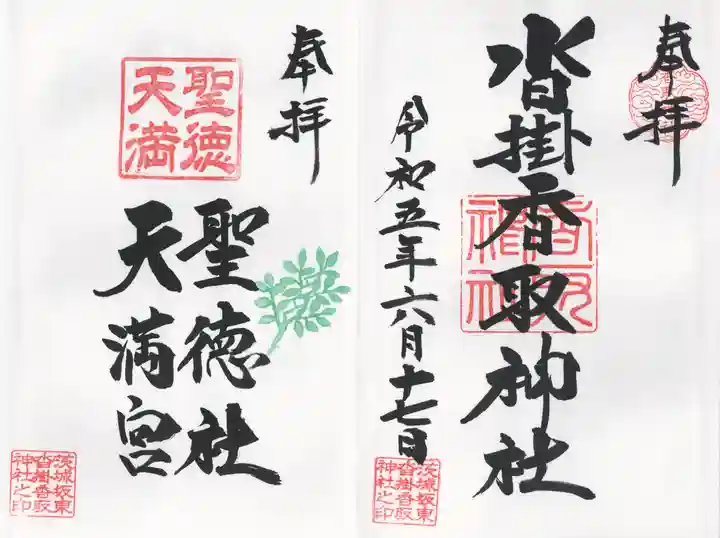 奉拝
沓掛香取神社
香取
神社
令和五年六月十七日
茨城坂東
沓掛香取
神社之印
奉拝
聖徳
天満
聖徳社
天満宮
茨城坂東
沓掛香取
神社之印